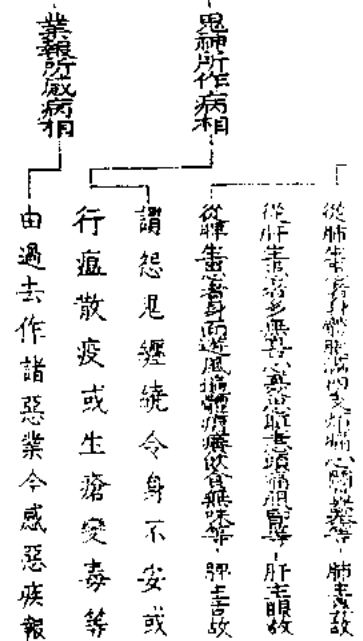 從肺生患者身體脹滿四支煩痛心悶鼻塞等 肺主鼻故
從肝生患者多無喜心憂愁瞋恚頭痛眼昏等 肝主眼故
從脾生患者身面遊風體痛癢飲食無味等 脾主舌故
鬼神所作病相
謂怨鬼纏繞令身不安或
行瘟散疫或生瘡變毒等
業報所感病相
由過去作諸惡業今感惡疾報